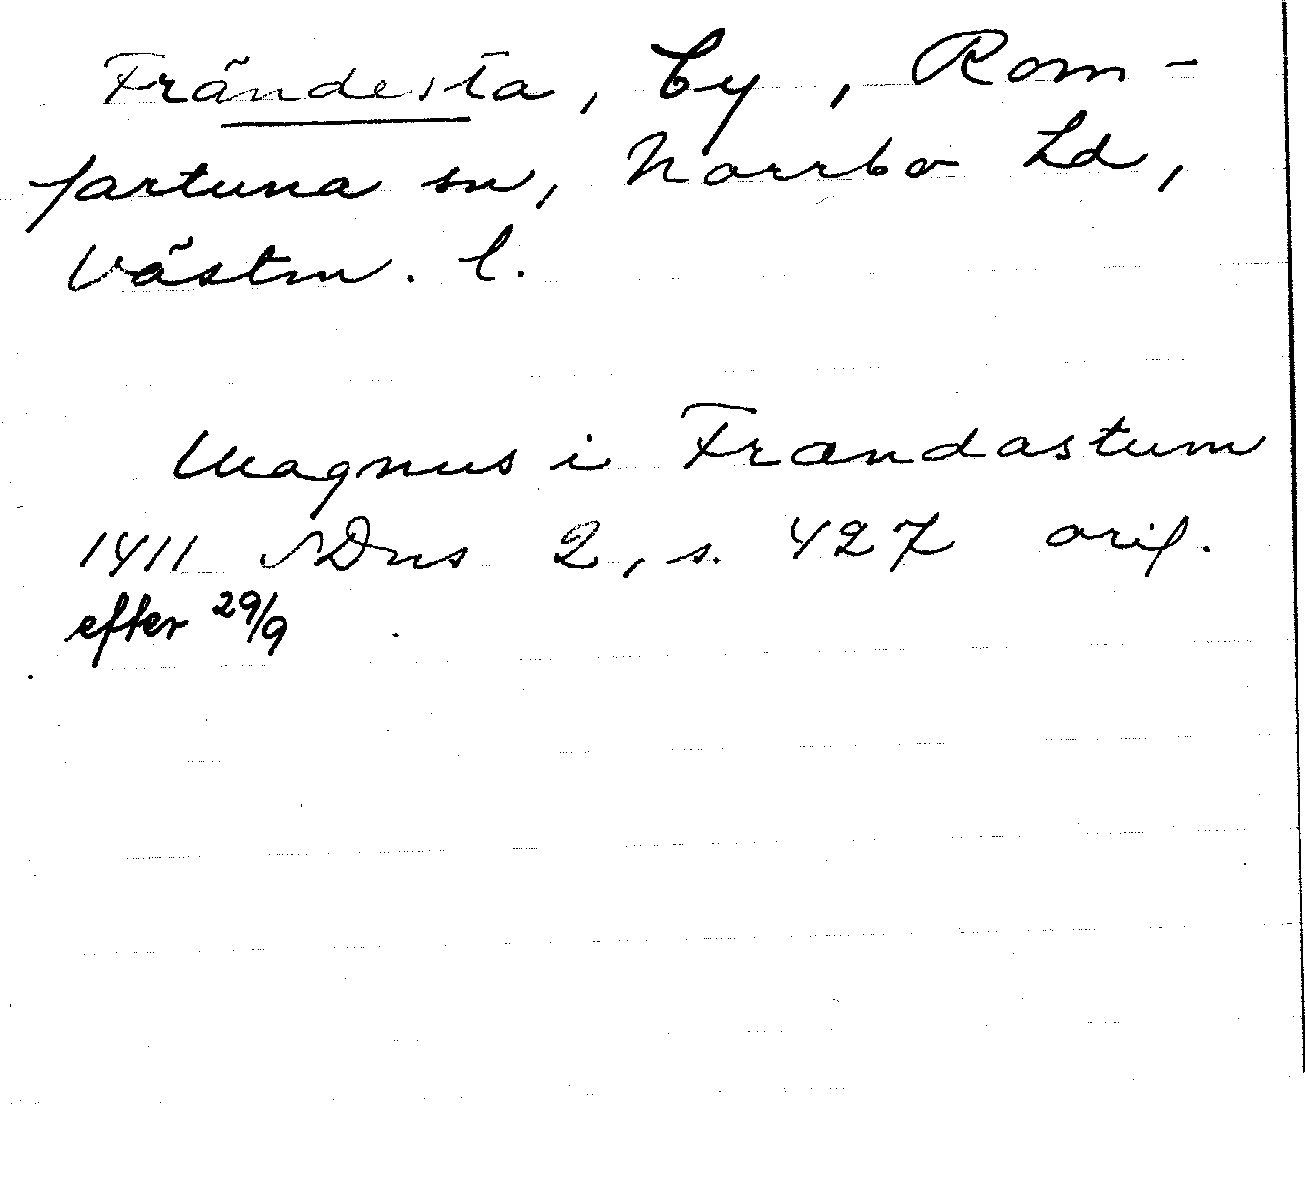 Frändesta, by, Rom-
fartuna sn, Norrbo hd,
Västm. l.
Magnus i Frændastum
1411 SDns 2, s. 427 orig.
efter 29/9